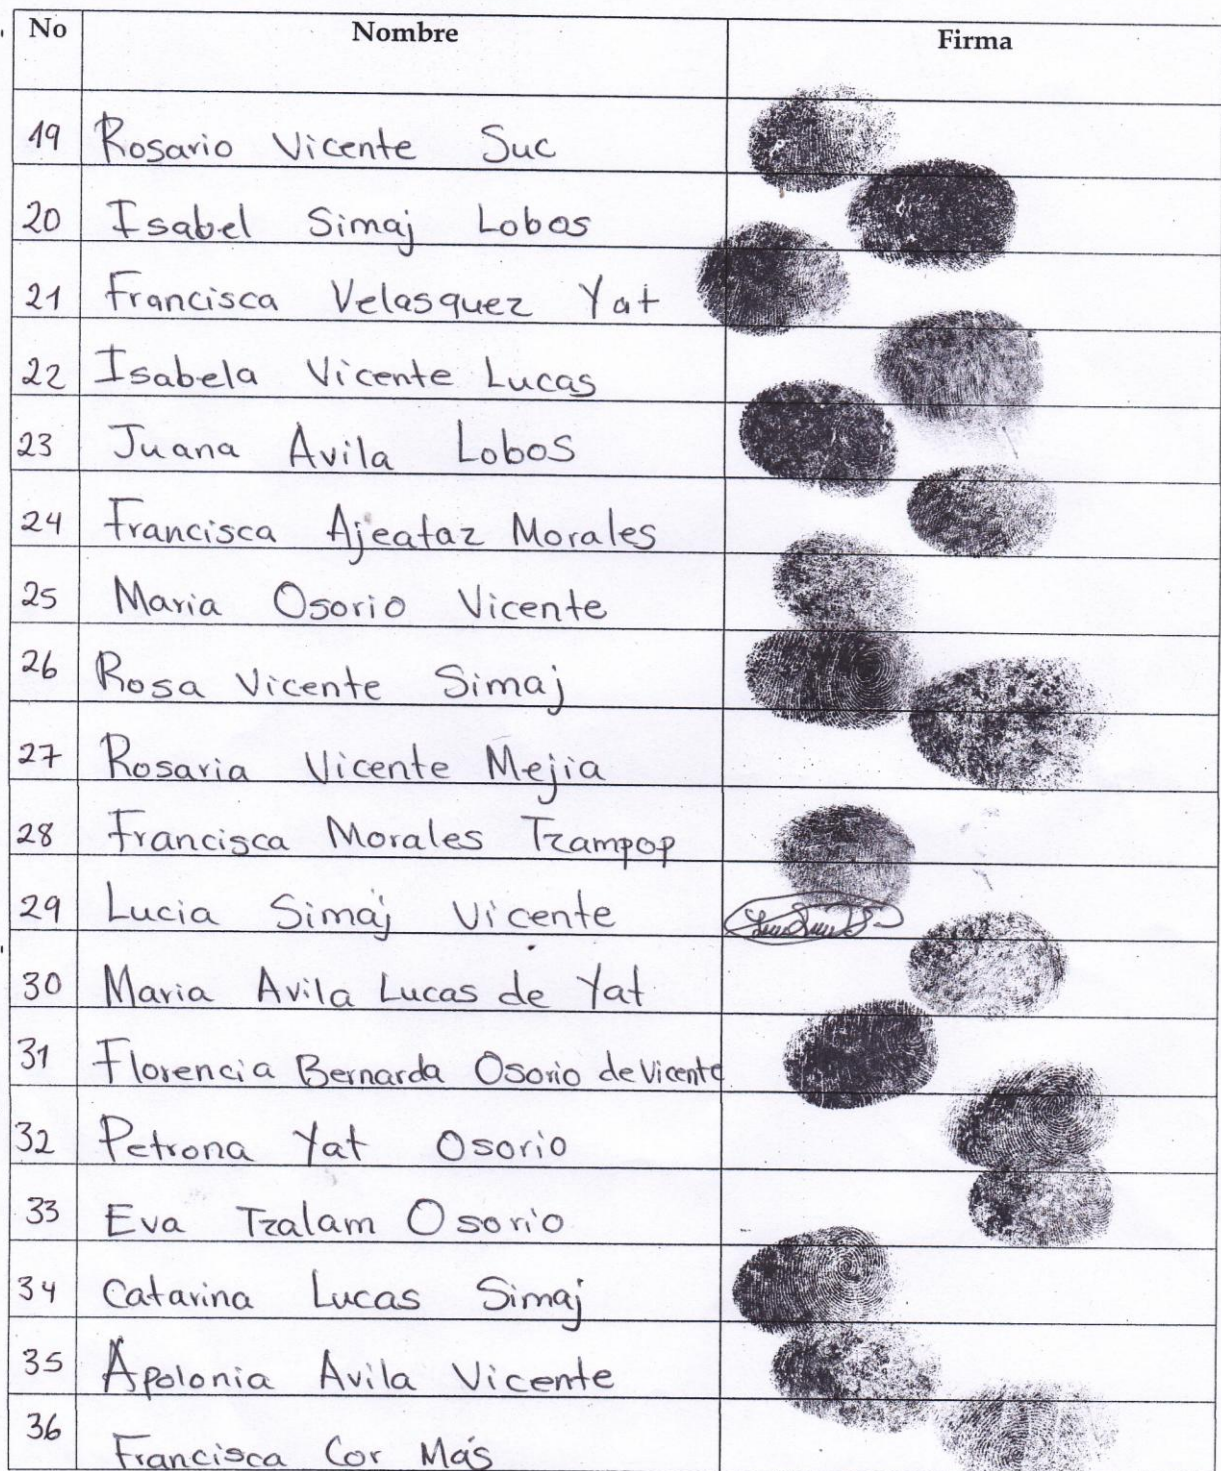 No Nombre Firma
19 Rosario Vicente Suc
20 Isabel Simaj Lobos
21 Francisca Velasquez Yat
22 Isabela Vicente Lucas
23 Juana Avila Lobos
24 Francisca Ajeataz Morales
25 Maria Osorio Vicente
26 Rosa Vicente Simaj
27 Rosaria Vicente Mejia
28 Francisca Morales Tzampop
29 Lucia Simaj Vicente
30 Maria Avila Lucas de Yat
31 Florencia Bernarda Osorio de Vicente
32 Petrona Yat Osorio
33 Eva Tzalam Osorio
34 Catarina Lucas Simaj
35 Apolonia Avila Vicente
36 Francisca Cor Más